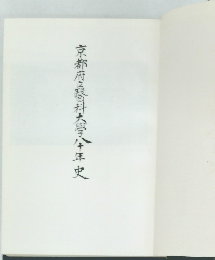 京都府立醫科大學八十年史